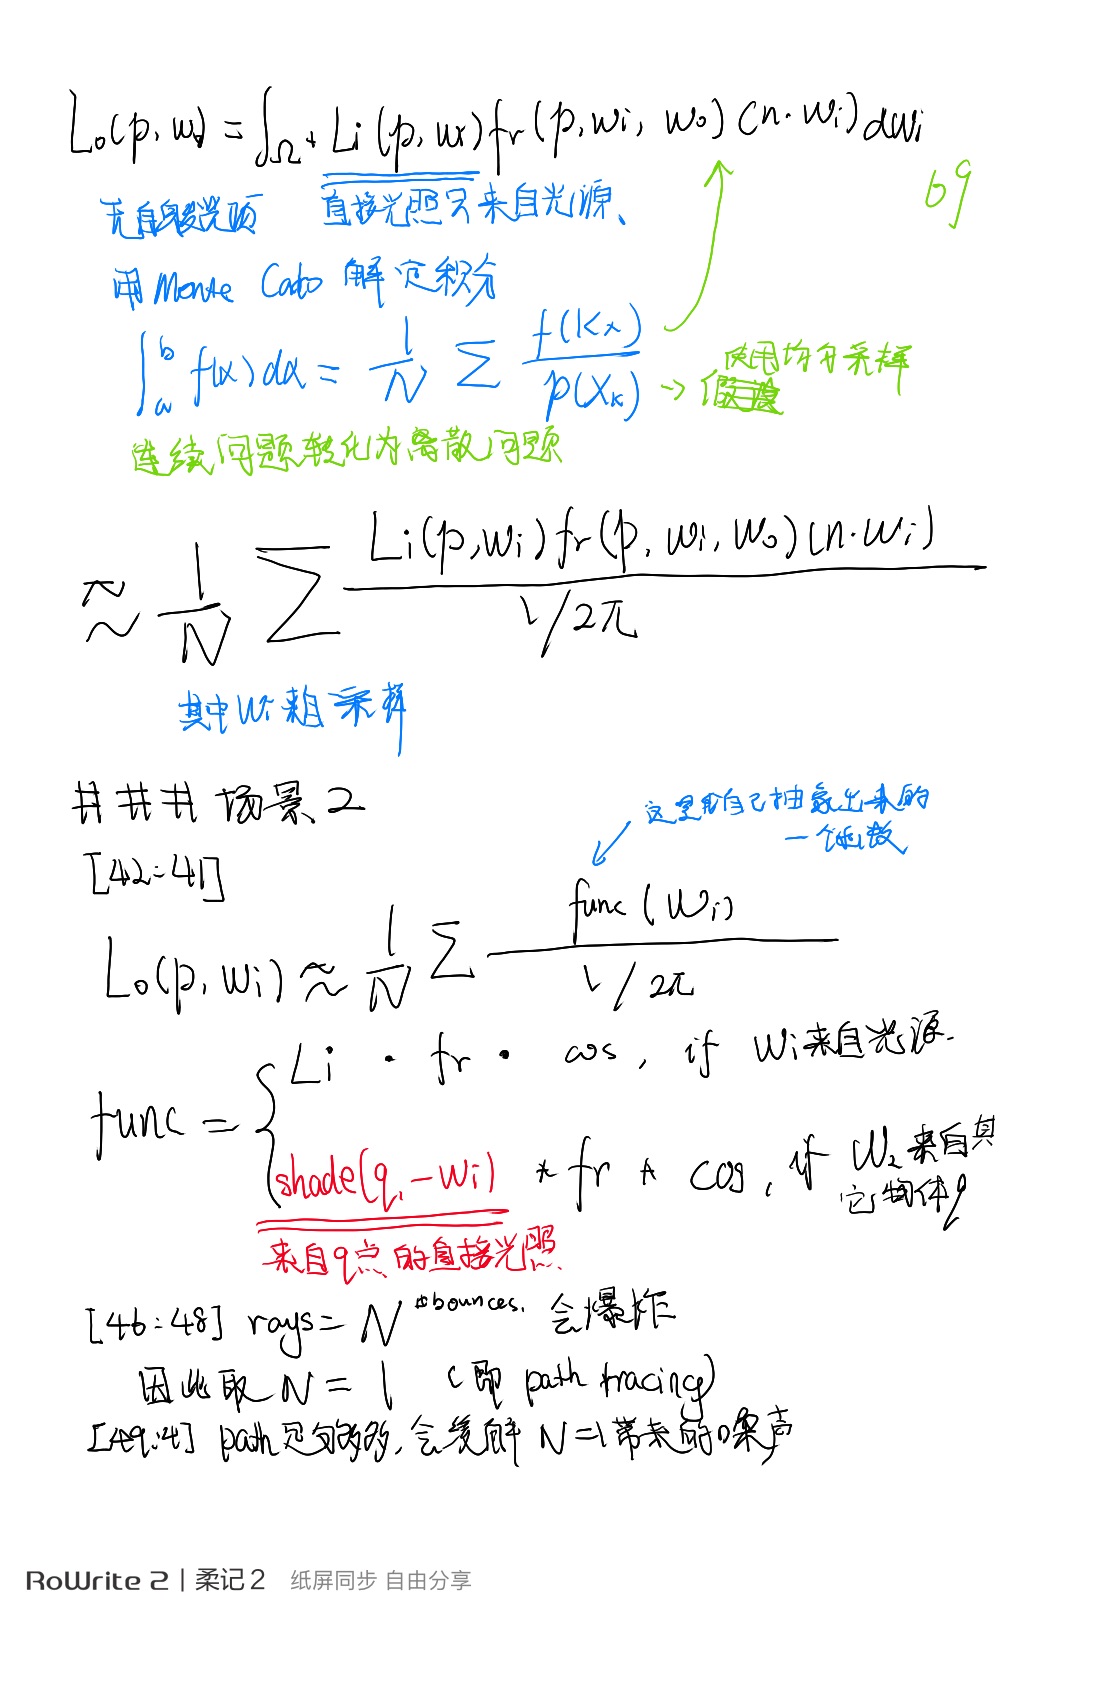 Lo(p, wo) = ∫Ω+ Li(p, wi) fr(p, wi, wo) (n·wi) dwi
无自发光项 直接光照只来自光源、
69
用 Monte Calo 解定积分
∫ab f(x)dx = 1/N Σ f(Xx)/p(Xk) → 使用均匀采样
连续问题转化为离散问题
≈ 1/N Σ Li(p,wi) fr(p, wi, wo) (n·wi) / 1/2π
其中 wi 来自采样
### 场景2
这里是自己抽象出来的
一个函数
[42:41]
Lo(p, wi) ≈ 1/N Σ func(wi) / 1/2π
func = { Li · fr · cos, if wi来自光源.
shade(q, -wi) * fr * cos, if w2来自其
它物体q
来自q点的直接光照
[46:48] rays = N #bounces. 会爆炸
因此取 N = 1 (即 path tracing)
[49:4] path 足够多, 会缓解 N=1带来的噪声
RoWrite 2 | 柔记 2 纸屏同步 自由分享